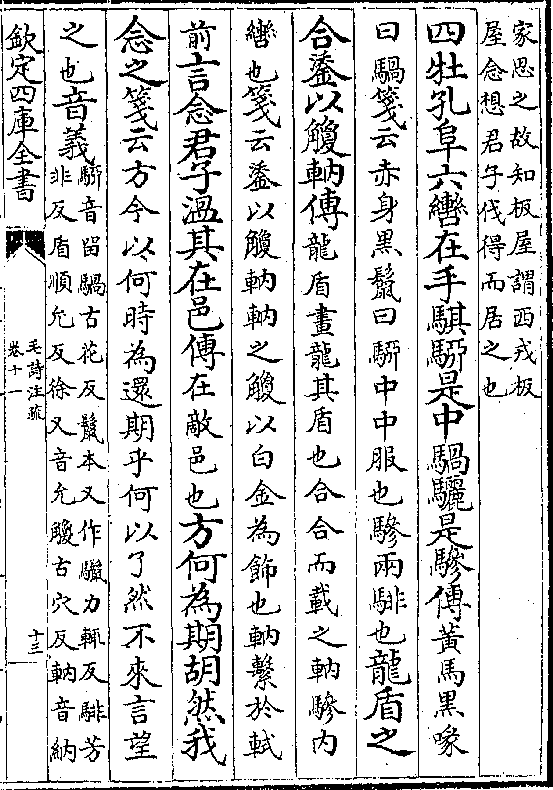 家思之故知板屋謂西戎板
屋念想君子伐得而居之也
四牡孔阜六轡在手騏駵是中騧驪是驂傳黃馬黑喙
曰騧箋云赤身黑鬛曰駵中中服也驂兩騑也龍盾之
合鋈以觼軜傳龍盾畫龍其盾也合合而載之軜驂内
轡也箋云鋈以觼軜軜之觼以白金為飾也軜繫於軾
前言念君子溫其在邑傳在敵邑也方何為期胡然我
念之箋云方今以何時為還期乎何以了然不來言望
之也音義駵音留騧古花反鬛本又作驖力輒反騑芳
非反盾順允反徐又音允觼古穴反軜音納
欽定四庫全書
毛詩注疏
卷十一
十三